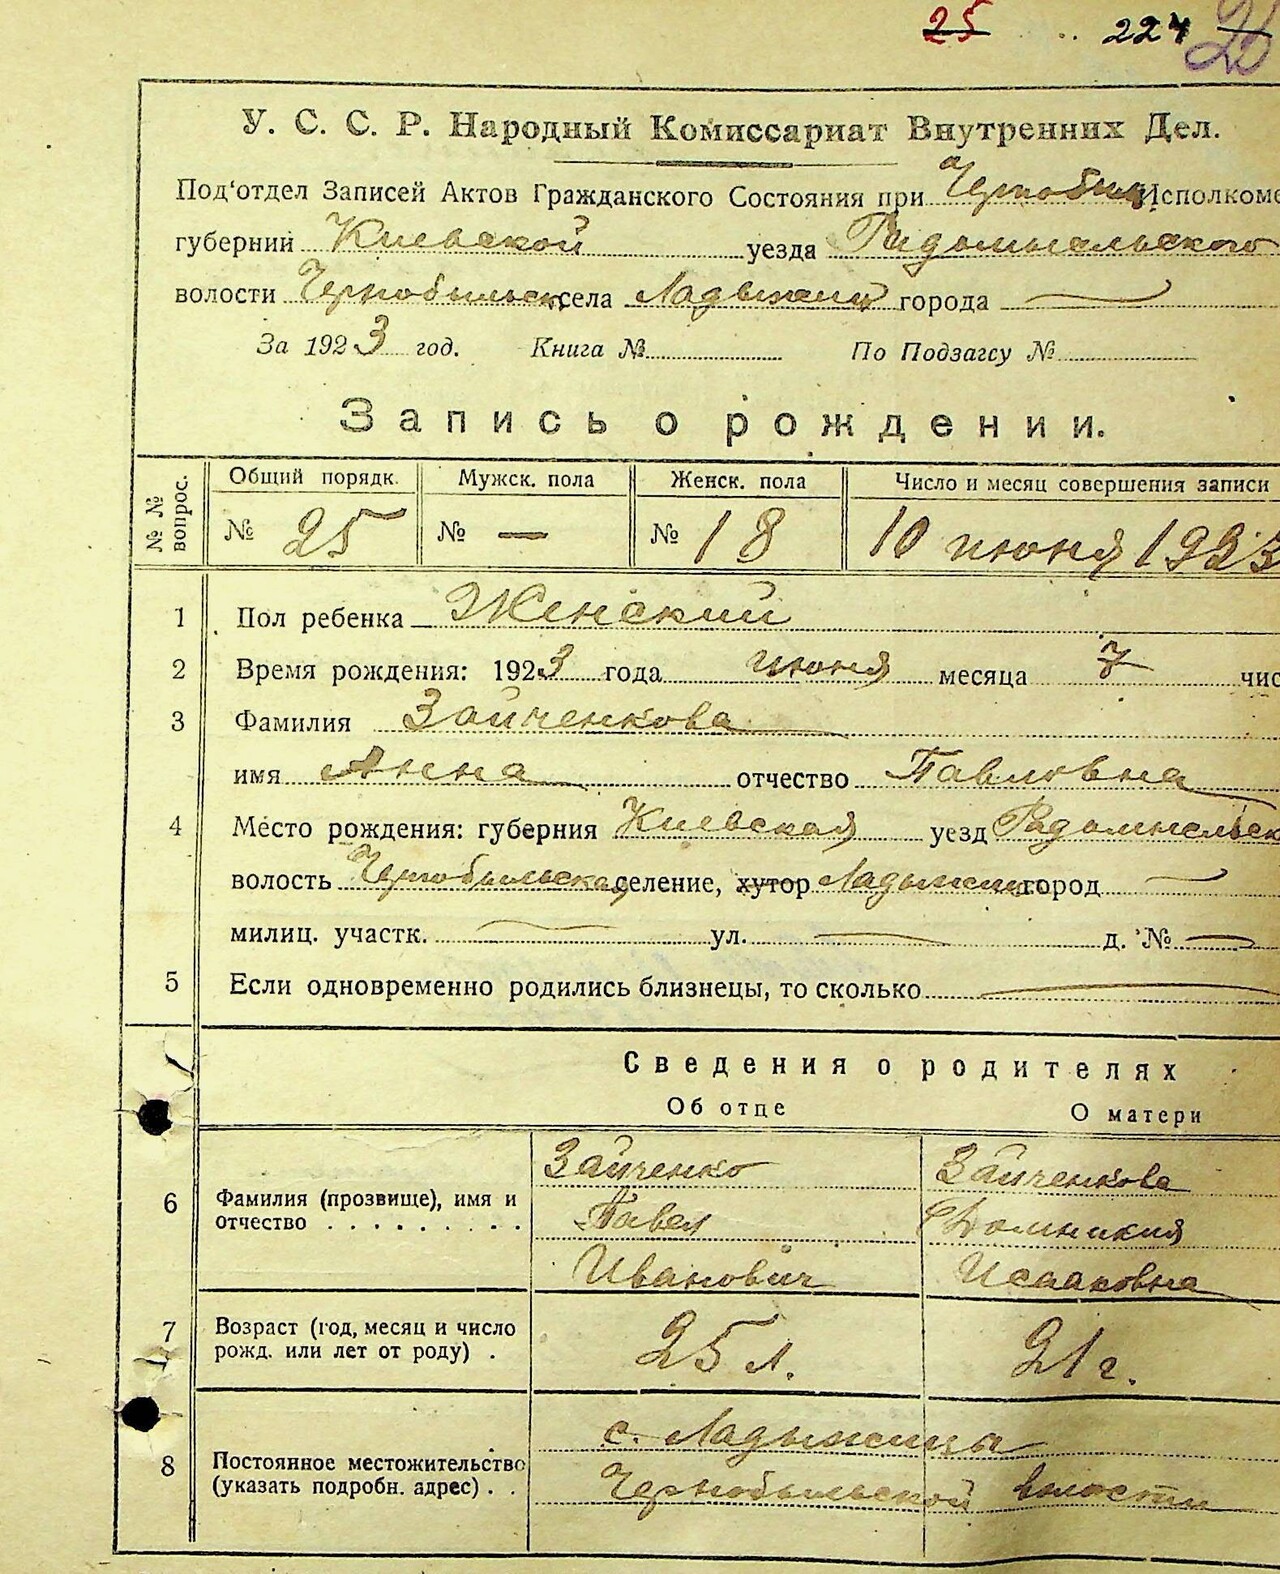 25 224
У. С. С. Р. Народный Комиссариат Внутренних Дел.
Под‘отдел Записей Актов Гражданского Состояния при Чернобыл Исполкоме
губерний Киевской уезда Радомысльского
волости Чернобыльск села Ладыжичи города —
За 1923 год. Книга № По Подзагсу №
Запись о рождении.
№ № вопрос. Общий порядк. Мужск. пола Женск. пола Число и месяц совершения записи
№ 25 № — № 18 10 июня 1923
1 Пол ребенка Женский
2 Время рождения: 1923 года июня месяца 7 чис
3 Фамилия Зайченкова
имя Анна отчество Павловна
4 Место рождения: губерния Киевская уезд Радомысльск
волость Чернобыльская селение, хутор Ладыжичи город —
милиц. участк. — ул. — д. № —
5 Если одновременно родились близнецы, то сколько —
Сведения о родителях
Об отце О матери
Зайченко Зайченкова
6 Фамилия (прозвище), имя и
отчество . . . . . . . . . Павел Домникия
Иванович Исааковна
7 Возраст (год, месяц и число
рожд. или лет от роду) . 25 л. 21 г.
с. Ладыжичы
8 Постоянное местожительство
(указать подробн. адрес) . . Чернобыльской волости